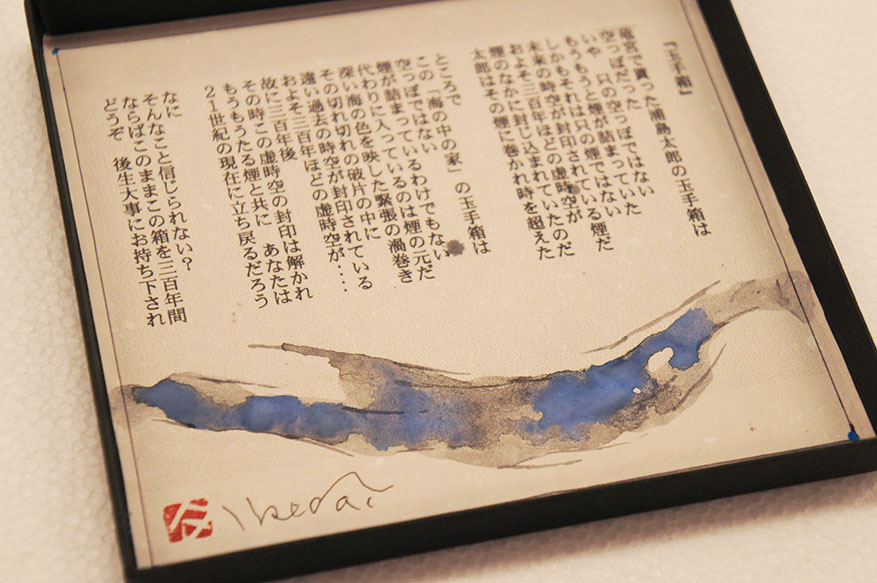 『玉手箱』
竜宮で貰った浦島太郎の玉手箱は
空っぽだった
いや　只の空っぽではない
もうもうと煙が詰まっていた
しかもそれは只の煙ではない
未来の時空が封印されている煙だ
およそ三百年ほどの虚時空が
煙のなかに封じ込まれていたのだ
太郎はその煙に巻かれ時を超えた
ところで
この「海の中の家」の玉手箱は
空っぽではない　わけでもない
煙が詰まっているのは煙の元だ
代わりに入っている
深い海の色を映した緊張の渦巻き
その切れ切れの破片の中に
遠い過去の時空が封印されている
およそ三百年ほどの虚時空が‥‥
故に三百年後
その時この虚時空の封印は解かれ
もうもうたる煙と共に　あなたは
21世紀の現在に立ち戻るだろう
なに
そんなこと信じられない？
ならばこのままこの箱を三百年間
どうぞ　後生大事にお持ち下され
Ikeda